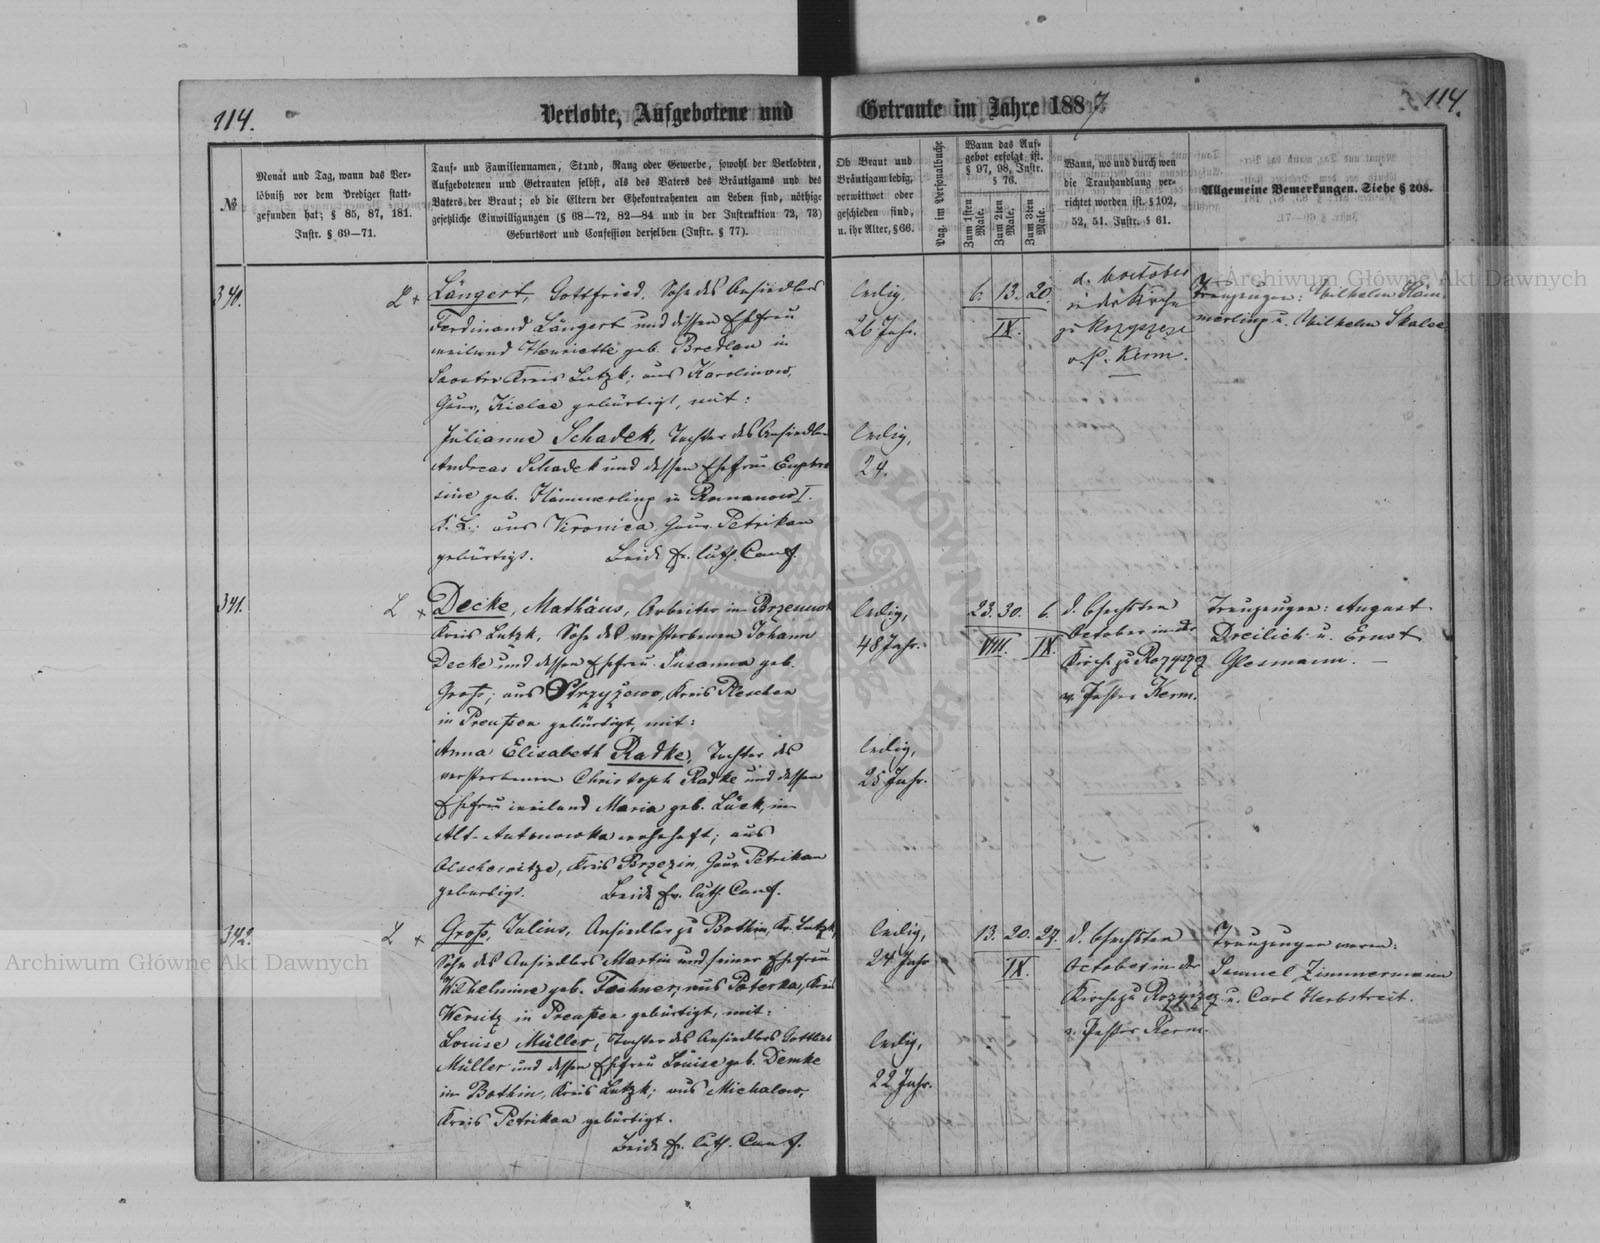 114.
Verlobte, Aufgebotene und
Getraute im Jahre 1887.
114.
№
Monat und Tag, wann das Ver-
löbniß vor dem Prediger statt-
gefunden hat; § 85, 87, 181.
Instr. § 69—71.
Tauf- und Familiennamen, Stand, Rang oder Gewerbe, sowohl der Verlobten,
Aufgebotenen und Getrauten selbst, als des Vaters des Bräutigams und des
Vaters der Braut; ob die Eltern der Ehekontrahenten am Leben sind, nöthige
gesetzliche Einwilligungen (§ 68—72, 82—84 und in der Instruktion 72, 73)
Geburtsort und Confession derselben (Instr. § 77).
Ob Braut und
Bräutigam ledig,
verwittwet oder
geschieden sind,
u. ihr Alter, § 66.
Pag. im Personalbuche
Wann das Auf-
gebot erfolgt ist.
§ 97, 98, Instr.
§ 76.
Zum 1sten
Male.
Zum 2ten
Male.
Zum 3ten
Male.
Wann, wo und durch wen
die Trauhandlung ver-
richtet worden ist. § 102,
52, 51. Instr. § 61.
Allgemeine Bemerkungen. Siehe § 208.
340.
L +
Längert, Gottfried, Sohn des Ansiedlers
Ferdinand Längert und dessen Ehefrau
weiland Henriette geb. Bredlau in
Kreis Lutzk; aus Karolinow,
Gouv. Kielce gebürtigt, mit:
Julianne Schadek, Tochter des Ansiedlers
Andreas Schadek und dessen Ehefrau Euphro-
sine geb. Hämmerling in Romanow I.
K. L.; aus Vironica Gouv. Petrikau
gebürtigt. Beide Ev. luth. Conf.
ledig,
26 Jahr.
ledig,
24.
6. 13. 20.
IX.
d. 6 October
in der Kirche
zu Rozyszcze
v. P. Kerm.
Trauzeugen: Wilhelm Häm-
merling u. Wilhelm Skalee
341.
L +
Decke, Mathäus, Arbeiter in
Kreis Lutzk, Sohn des verstorbenen Johann
Decke und dessen Ehefrau Susanna geb.
Groß; aus Strzyżewo, Kreis Pleschen
in Preußen gebürtigt, mit:
Anna Elisabeth Radke, Tochter des
verstorbenen Christoph Radke und dessen
Ehefrau weiland Maria geb. Lück, in
Alt-Antonowka wohnhaft; aus
Olschewitze, Kreis Brzezin, Gouv. Petrikau
gebürtigt. Beide Ev. luth. Conf.
ledig,
48 Jahr.
ledig,
25 Jahr.
23. 30. 6.
VIII. IX.
d. 6sechsten
October in der
Kirche zu Rozyszcz
v. Pastor Kerm.
Trauzeugen: August
Dreilich u. Ernst
Glesmann. —
342.
L +
Groß, Julius, Ansiedler zu Bothin, Kr. Lutzk,
Sohn des Ansiedlers Martin und seiner Ehefrau
Wilhelmine geb. Fechner; aus Poterka, Kreis
Wersitz in Preußen gebürtigt, mit:
Louise Müller, Tochter des Ansiedlers Gottlieb
Müller und dessen Ehefrau Louise geb. Demke
in Bothin, Kreis Lutzk; aus Michalow,
Kreis Petrikau gebürtigt.
Beide Ev. luth. Conf.
ledig,
24 Jahr
ledig,
22 Jahr.
13. 20. 27.
IX.
d. 6sechsten
October in der
Kirche zu Rozyszcz
v. Pastor Kerm.
Trauzeugen waren:
Samuel Zimmermann
u. Carl Herbstreit.
Archiwum Główne Akt Dawnych
Archiwum Główne Akt Dawnych